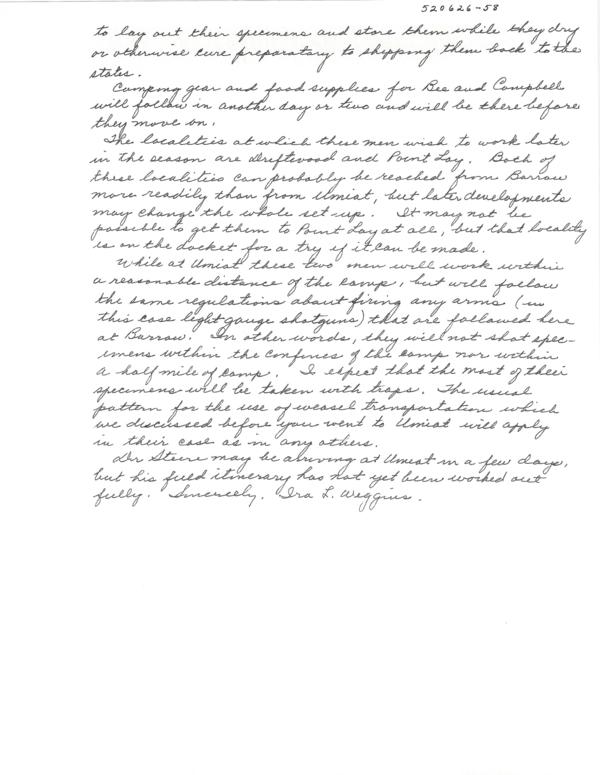 520626-58
to lay out their specimens and store them while they dry
or otherwise cure preparatory to shipping them back to the
states.
Camping gear and food supplies for Bee and Campbell
will follow in another day or two and will be there before
they move on.
The localities at which these men wish to work later
in the season are Driftwood and Point Lay. Both of
these localities can probably be reached from Barrow
more readily than from Umiat, but later developments
may change the whole set up. It may not be
possible to get them to Point Lay at all, but that locality
is on the docket for a try if it can be made.
While at Umiat these two men will work within
a reasonable distance of the camp, but will follow
the same regulations about firing any arms (in
this case light gauge shotguns) that are followed here
at Barrow. In other words, they will not shot spec-
imens within the confines of the camp nor within
a half mile of camp. I expect that the most of their
specimens will be taken with traps. The usual
pattern for the use of weasel transportation which
we discussed before you went to Umiat will apply
in their case as in any others.
Dr Steere may be arriving at Umiat in a few days,
but his field itinerary has not yet been worked out
fully. Sincerely, Ira L. Wiggins.